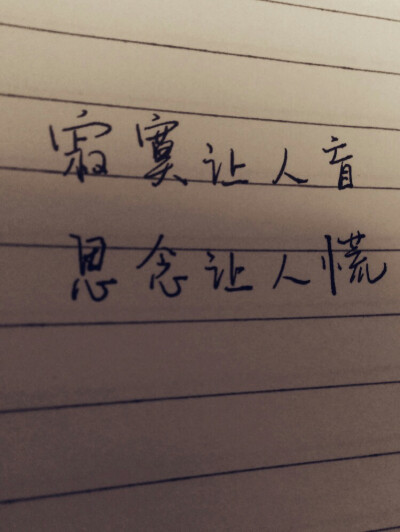 寂寞让人盲
思念让人慌